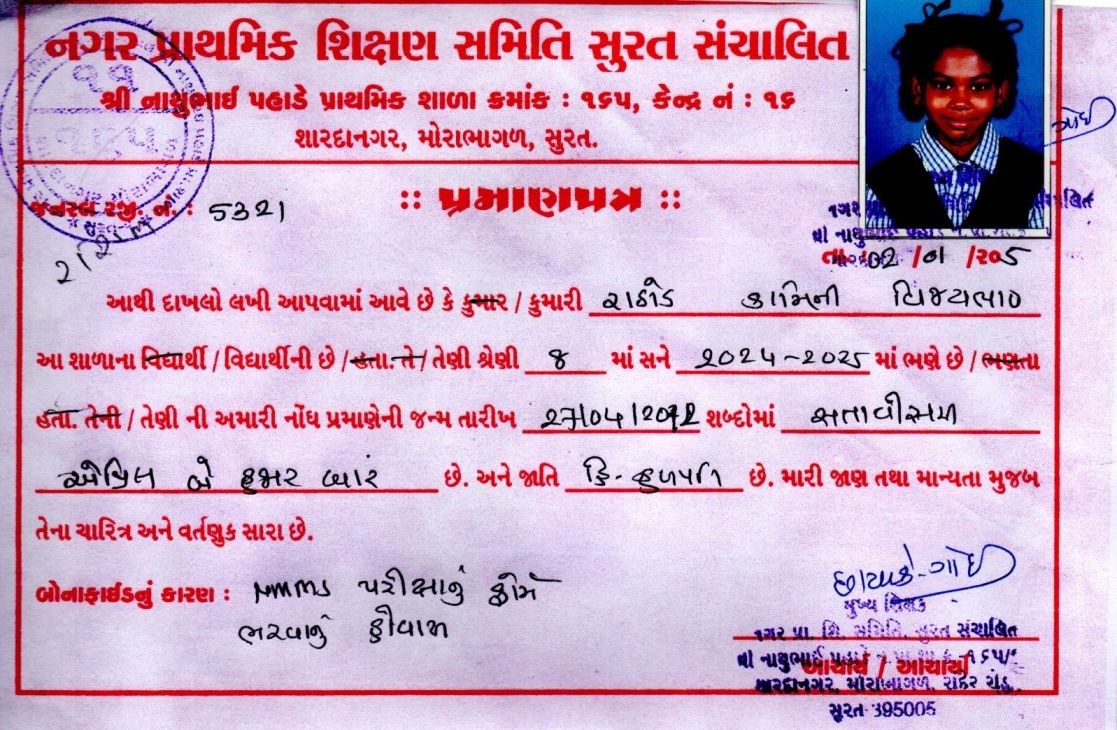 નગર પ્રાથમિક શિક્ષણ સમિતિ સુરત સંચાલિત
શ્રી નાથુભાઈ પહાડે પ્રાથમિક શાળા ક્રમાંક : ૧૬૫, કેન્દ્ર નં : ૧૬
શારદાનગર, મોરાભાગળ, સુરત.
:: પ્રમાણપત્ર ::
જનરલ રજી. નં. : 5321
તા. : 02 / 01 / ૨૦5
આથી દાખલો લખી આપવામાં આવે છે કે કુમાર / કુમારી રાઠોડ કામિની વિજયભાઇ
આ શાળાના વિદ્યાર્થી / વિદ્યાર્થીની છે / હતા. તે / તેણી શ્રેણી 8 માં સને 2024-2025 માં ભણે છે / ભણતા
હતા. તેની / તેણી ની અમારી નોંધ પ્રમાણેની જન્મ તારીખ 27/04/2012 શબ્દોમાં સતાવીસમી
એપ્રિલ બે હજાર બાર છે. અને જાતિ હિ- હળપતિ છે. મારી જાણ તથા માન્યતા મુજબ
તેના ચારિત્ર અને વર્તણુક સારા છે.
બોનાફાઈડનું કારણ : NMMS પરીક્ષાનું ફોર્મ
ભરવાનું હોવાથી
મુખ્ય શિક્ષક
નગર પ્રા. શિ. સમિતિ. સુરત સંચાલિત
આચાર્ય / આચાર્યા
શારદાનગર, મોરાભાગળ, રાંદેર રોડ,
સુરત 395005